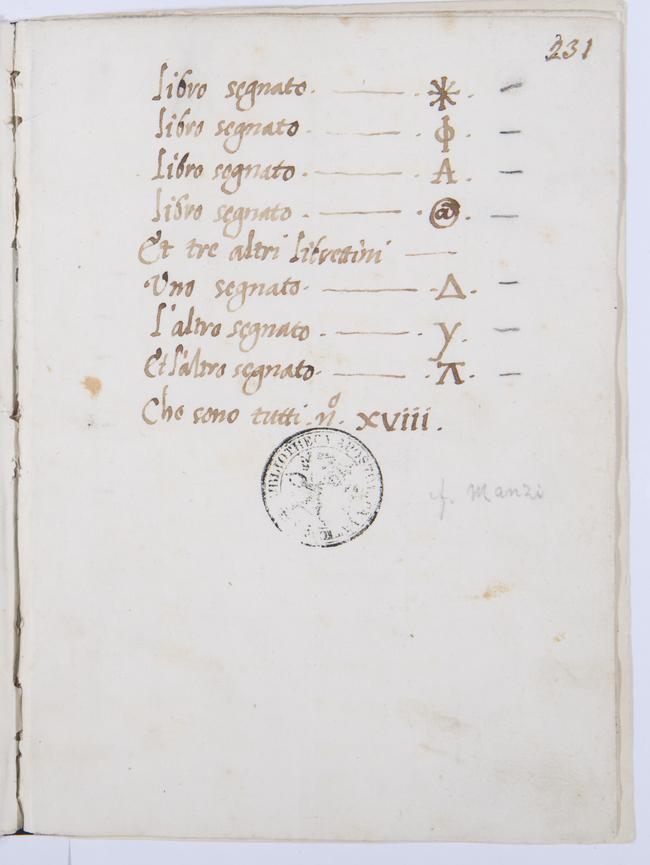 231
Libro segnato. —— . ⁎ . —
libro segnato . —— . Φ . —
Libro segnato . —— . A . —
libro segnato . —— . @ . —
Et tre altri librettini ——
Uno segnato . —— . Δ . —
l'altro segnato . —— . y . —
Et l'altro segnato . —— . Λ . —
Che sono tutti . nº . XVIII .
BIBLIOTHECA APOSTOLICA VATICANA
cf. Manzi